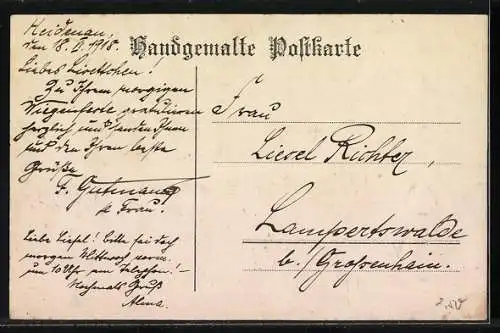 Heidenau,
den 18. II. 1918.
Handgemalte Postkarte
Liebes Lieselchen!
Zu Ihrem morgigen
Wiegenfeste gratulieren
herzlich und senden Ihnen
und den Ihren beste
Grüße
F. Gutmann
u. Frau.
Liebe Liesel! bitte sei doch
morgen Mittwoch vorm.
um 10 Uhr am Telephon! –
Nochmals Gruß
Alma.
Frau
Liesel Richter,
Lampertswalde
b./Großenhain.